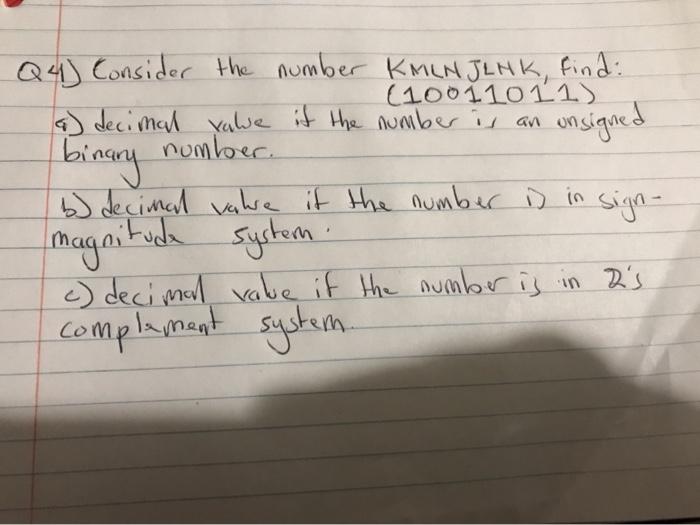 Q4) Consider the number KMLNJLNK, find:
(10011011)
a) decimal value if the number is an unsigned
binary number.
b) decimal value if the number is in sign-
magnitude system.
c) decimal value if the number is in 2's
complament system.